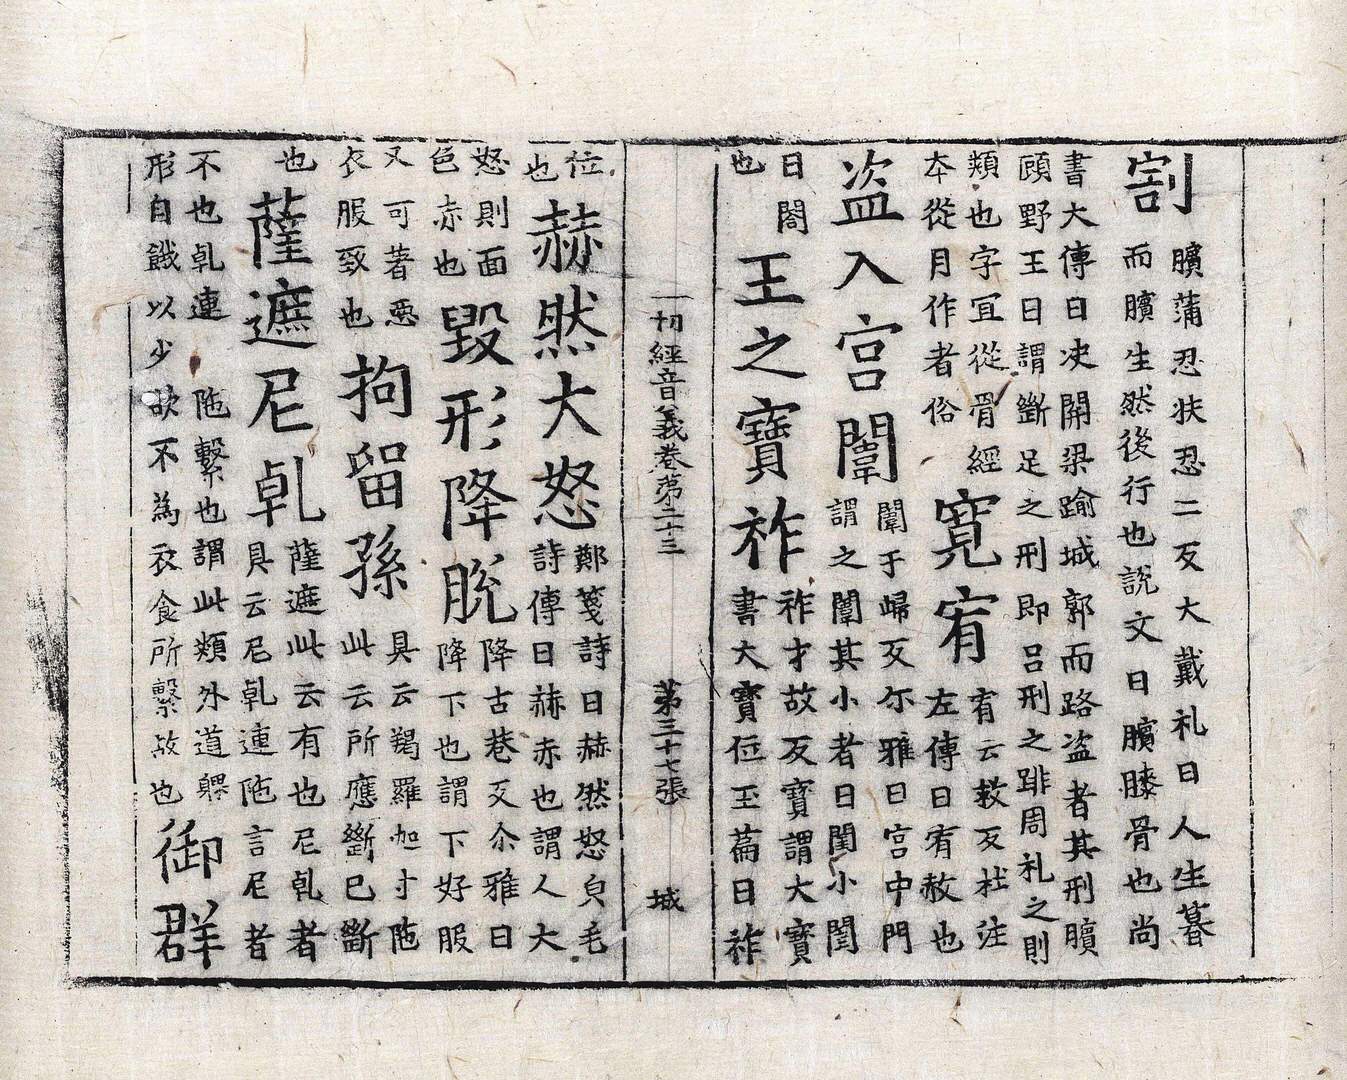 割
臏蒲忍扶忍二反大戴礼曰人生暮
而臏生然後行也説文曰臏膝骨也尚
書大傳曰决開梁踰城郭而路盗者其刑臏
頋野王曰謂斷足之刑即吕刑之跸周礼之刖
類也字宜從骨經
本從月作者俗
寬宥
有云救反杜注
左傳曰宥赦也
盗入宫闈
闈于歸反尔雅曰宫中門
謂之闈其小者曰閨小閨
曰閤
也
王之寶祚
祚才故反寶謂大寶
書大寶位玉篇曰祚
一切經音義卷第二十三 第三十七張 城
位
也
赫然大怒
鄭箋詩曰赫然怒皃毛
詩傳曰赫赤也謂人大
怒則面
色赤也
毀形降脫
降古巷反尒雅曰
降下也謂下好服
又可著惡
衣服致也
拘留孫
具云羯羅迦寸陁
此云所應斷已斷
也
薩遮尼乹
薩遮此云有也尼乹者
具云尼乹連陁言尼者
不也乹連陁繫也謂此類外道躶
形自餓以少欲不為衣食所繫故也
御群